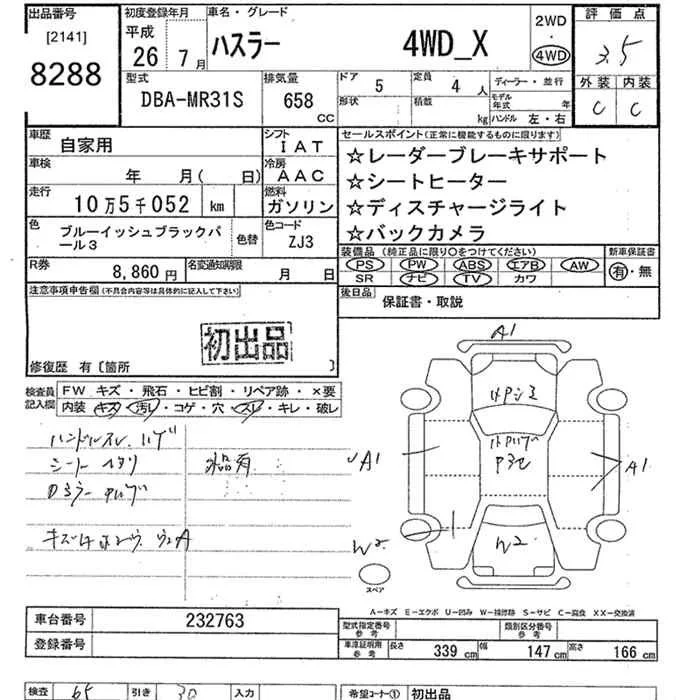 出品番号
[2141]
8288
初度登録年月
平成
26 7月
車名・グレード
ハスラー 4WD_X
2WD
・
4WD
評価点
3.5
外装 内装
C C
型式
DBA-MR31S
排気量
658 CC
ドア 5
定員 4 人
ディーラー・並行
形状
積載 kg
モデル年式 年
ハンドル 左・右
車歴
自家用
シフト
IAT
車検
年 月( 日)
冷房
AAC
走行
10万5千052 km
燃料
ガソリン
色
ブルーイッシュブラックパール3
色替
色コード
ZJ3
R券
8,860円
名変通知期限
月 日
セールスポイント(正常に機能するものに限ります)
☆レーダーブレーキサポート
☆シートヒーター
☆ディスチャージライト
☆バックカメラ
装備品 (純正品に限り〇をつけてください)
PS PW ABS エアB AW
SR ナビ TV カワ
新車保証書
有・無
後日品
保証書・取説
注意事項申告欄(不具合内容等は具体的に記入して下さい)
初出品
修復歴 有〔箇所 〕
検査員記入欄
FW キズ・飛石・ヒビ割・リペア跡・×要
内装 キズ・汚レ・コゲ・穴・スレ・キレ・破レ
A1
A1
A1
W2
W2
スペア
A-キズ E-エクボ U-凹み W-補修跡 S-サビ C-腐食 XX-交換済
車台番号
232763
登録番号
型式指定番号
参考
類別区分番号
参考
車庫証明用
参考
長さ 339 cm
幅 147 cm
高さ 166 cm
検査 65
引き 30
入力
希望コーナー①
初出品